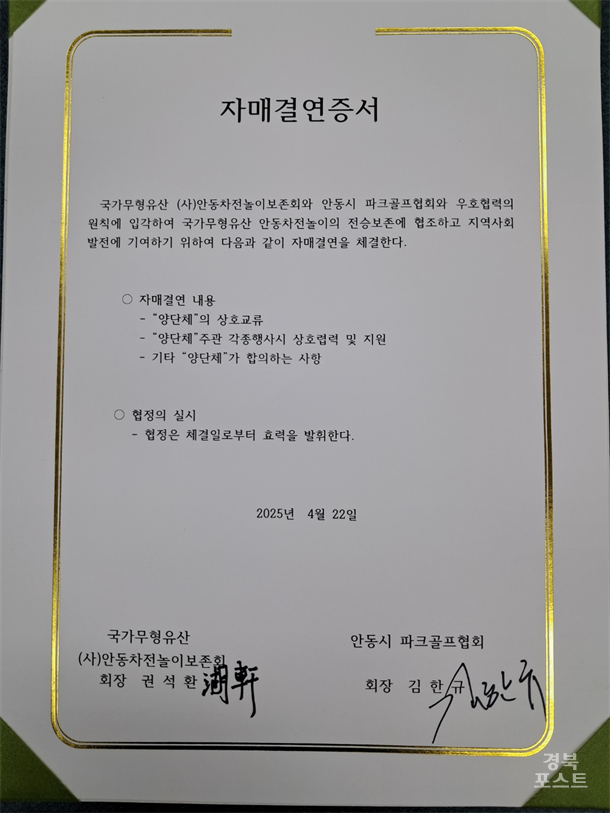 자매결연증서
국가무형유산 (사)안동차전놀이보존회와 안동시 파크골프협회와 우호협력의
원칙에 입각하여 국가무형유산 안동차전놀이의 전승보존에 협조하고 지역사회
발전에 기여하기 위하여 다음과 같이 자매결연을 체결한다.
○ 자매결연 내용
- “양단체”의 상호교류
- “양단체”주관 각종행사시 상호렵력 및 지원
- 기타 “양단체”가 합의하는 사항
○ 협정의 실시
- 협정은 체결일로부터 효력을 발휘한다.
2025년 4월 22일
국가무형유산
(사)안동차전놀이보존회
회장 권석환
안동시 파크골프협회
회장 김한규
경북
포스트